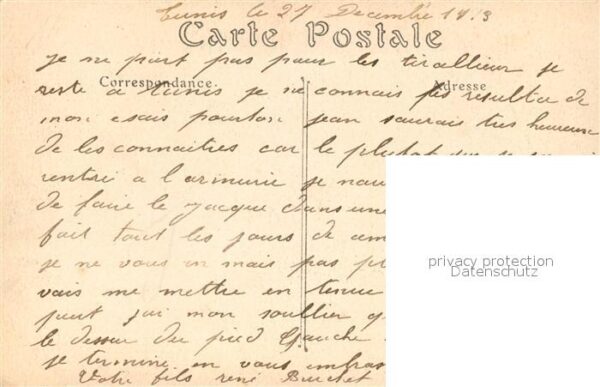 Tunis le 27 Decembre 19 3
Carte Postale
je ne part pas pour les tirallieur je
Correspondance. Adresse
reste a Tunis je ne connais pas resultat de
mon esais pourtan jean saurais tres heureuse
de les connaitres car le plutot que je
rentré a l'armurie je
de faire le Jacque dans une
fait tout les jours de
je ne vous en mais pas
vais me mettre en tenue
peut jai mon soullier
le dessur du pied Gauche
je termine en vous embras
Votre fils rené Burchet
privacy protection
Datenschutz